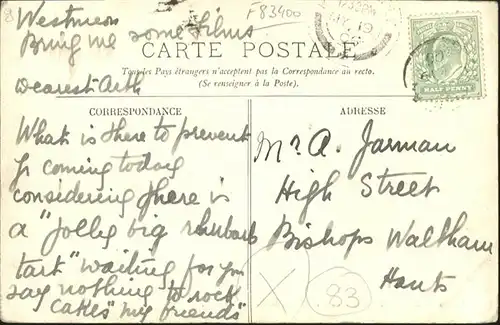 Westmeon
Bring me some films
F83400
CARTE POSTALE
Tous les Pays étrangers n'acceptent pas la Correspondance au recto.
(Se renseigner à la Poste).
Dearest Arth
CORRESPONDANCE
What is there to prevent
yr coming today
considering there is
a "jolly big rhubarb
tart" waiting for you
say nothing to rock
cakes "my friends"
ADRESSE
Mr A. Jarman
High Street
Bishops Waltham
Hants
X
83
MY 19
HALF PENNY